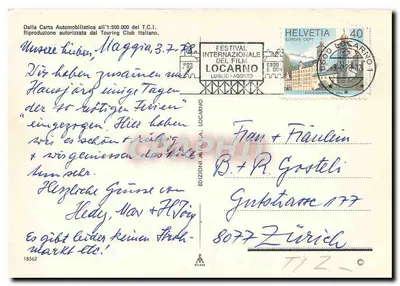 Dalla Carta Automobilistica all'1:500.000 del T.C.I.
Riproduzione autorizzata dal Touring Club Italiano.
Unsere Lieben, Maggia, 3.7.78
Wir haben zusammen mit
Hansjörg einige Tagen
der "so nötigen Ferien"
"eingezogen". Hier haben
wir es schön + ruhig
+ wir geniessen das
sehr.
Herzliche Grüsse von
Hedy, Max + HJörg
Es gibt leider keinen Stroh-
markt etc!
18562
EDIZIONI A. LOCARNO
FESTIVAL
INTERNAZIONALE
DEL FILM
LOCARNO
LUGLIO-AGOSTO
6600 LOCARNO 1
HELVETIA 40
EUROPA CEPT
Frau + Fräulein
B. + R. Gosteli
Gutstrasse 177
8077 Zürich
TIZ
©